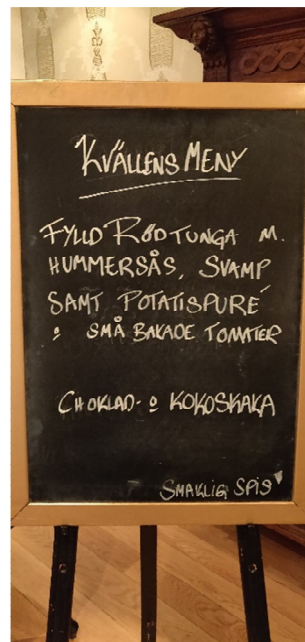 KVÄLLENS MENY
FYLLD RØDTUNGA M.
HUMMERSÅS, SVAMP
SAMT POTATISPURÉ
o SMÅ BAKADE TOMATER
CHOKLAD- o KOKOSKAKA
SMAKLIG SPIS